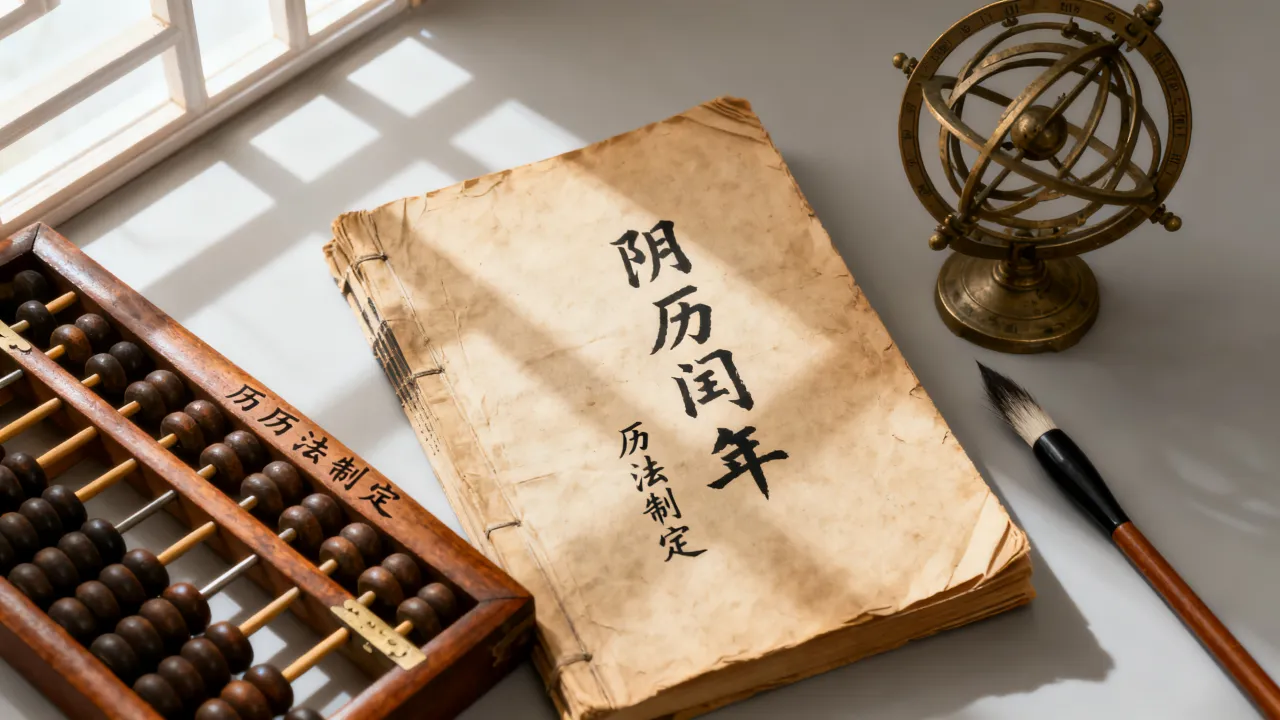 阴历闰年
历法制定
历历法制定